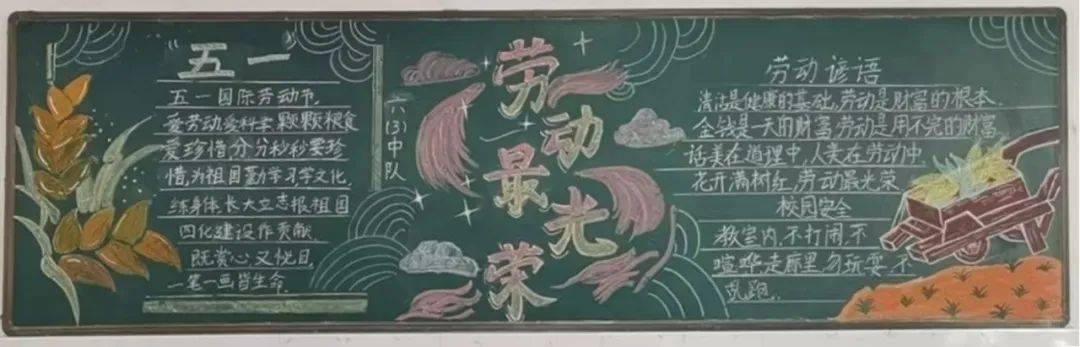 “五一
五一国际劳动节,
爱劳动爱科学,颗颗粮食
爱珍惜分分秒秒要珍
惜,为祖国勤学习学文化,
练身体,长大立志报祖国
四化建设作贡献
既赏心又悦目,
一笔一画皆生命
六(3)中队
劳动最光荣
劳动谚语
清洁是健康的基础,劳动是财富的根本.
金钱是一天的财富,劳动是用不完的财富
话美在道理中,人美在劳动中
花开满树红,劳动最光荣
校园安全
教室内,不打闹,不
喧哗,走廊里,勿玩耍,不
乱跑..